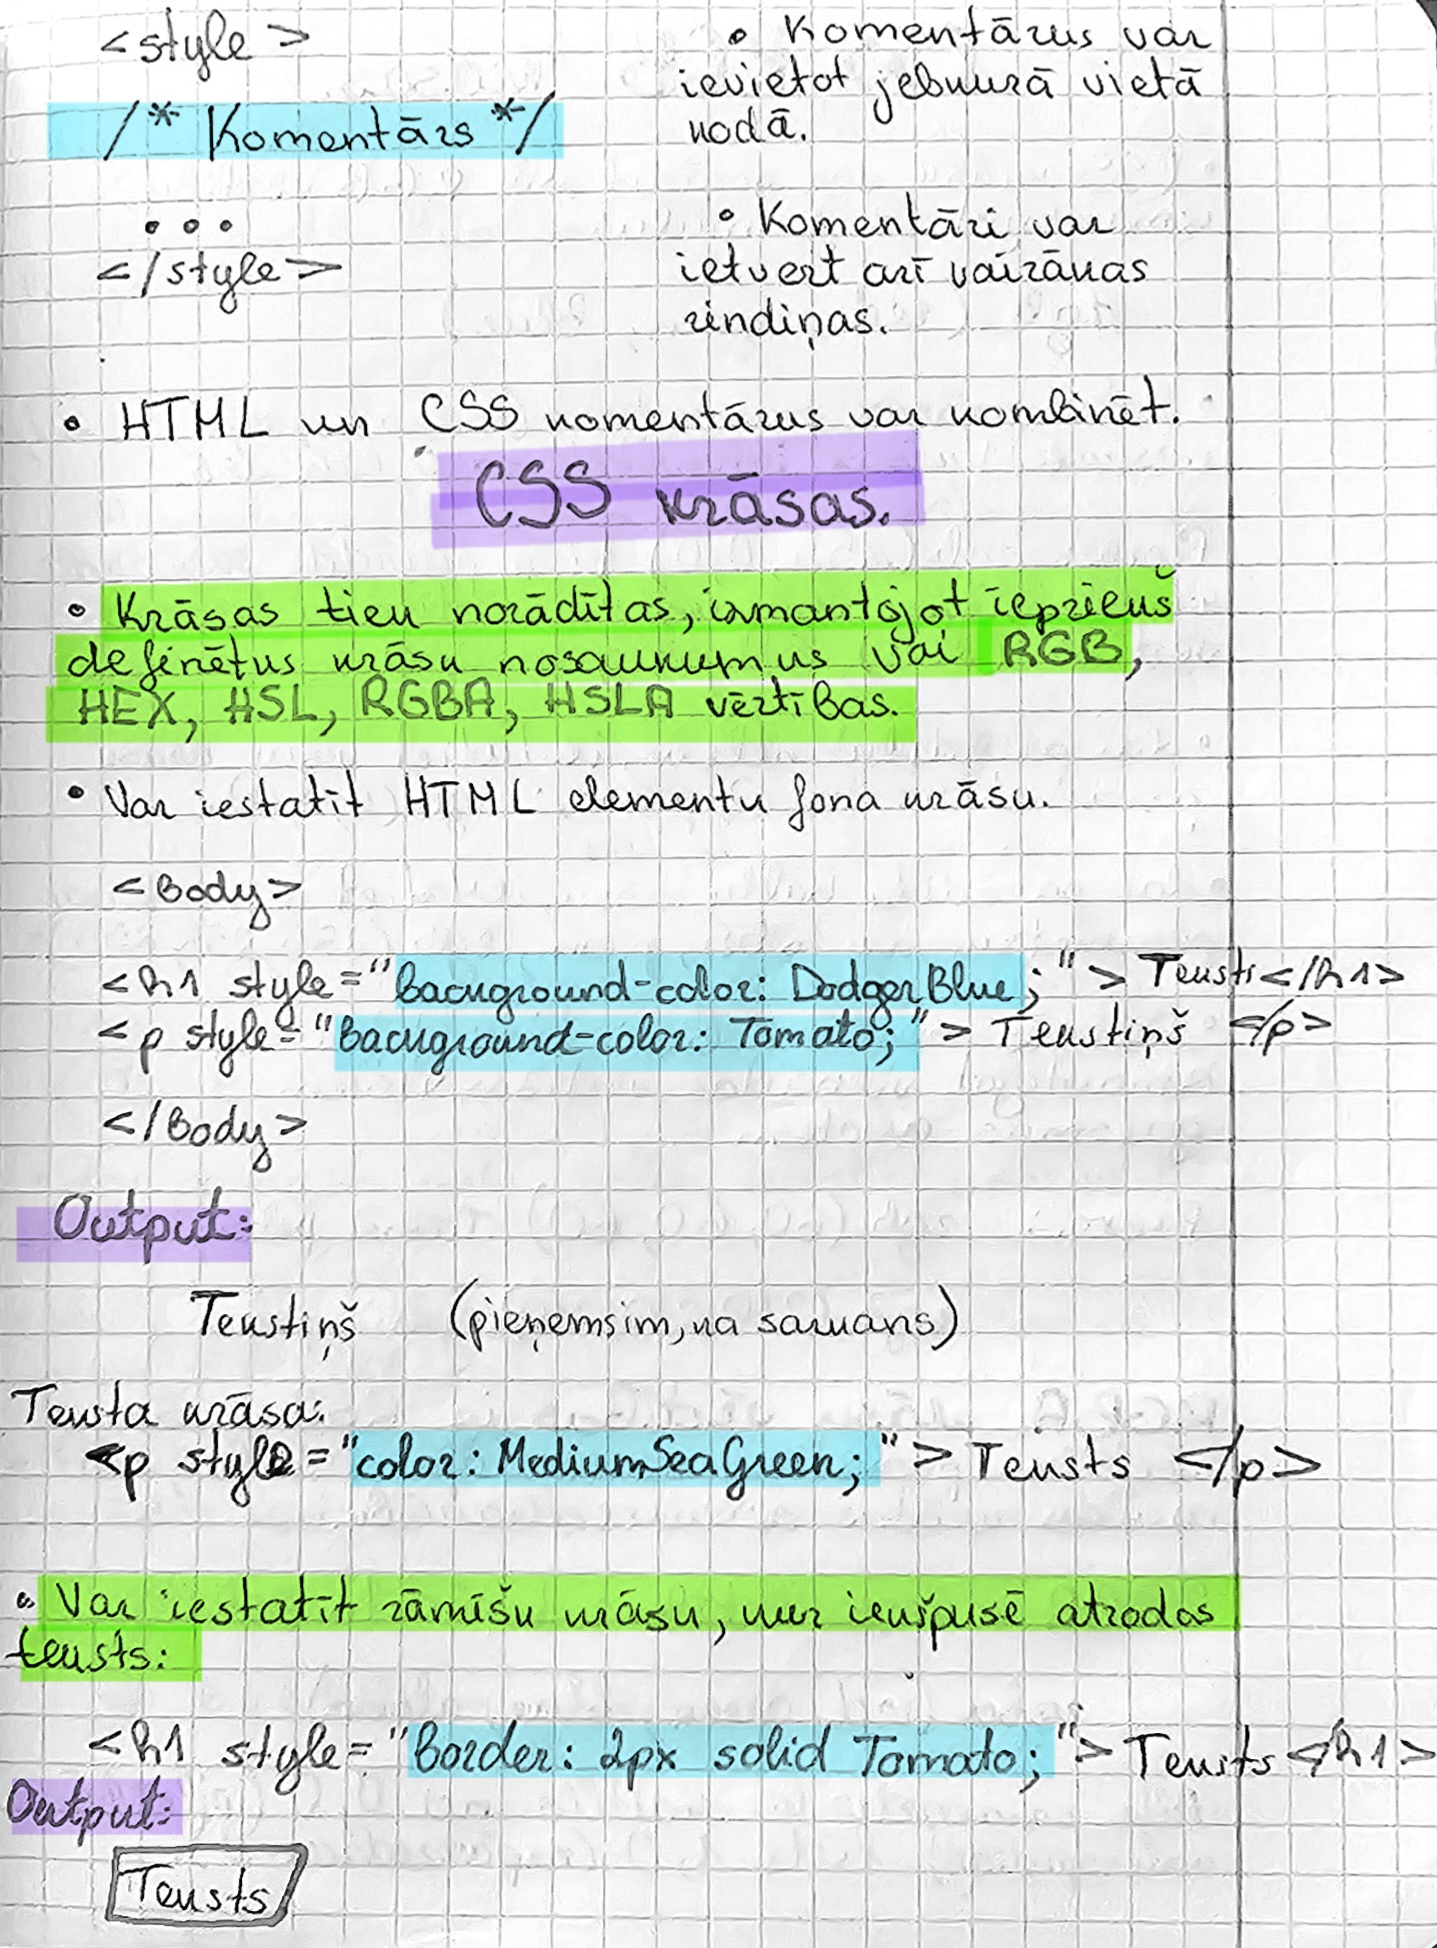 <style>
/* Komentārs */
...
</style>
• Komentārus var
ievietot jebkurā vietā
kodā.
• Komentāri var
ietvert arī vairākas
rindiņas.
• HTML un CSS komentārus var kombinēt.
CSS krāsas.
• Krāsas tiek norādītas, izmantojot iepriekš
definētus krāsu nosaukumus vai RGB,
HEX, HSL, RGBA, HSLA vērtības.
• Var iestatīt HTML elementu fona krāsu.
<body>
<h1 style="background-color: DodgerBlue;"> Teksts</h1>
<p style="background-color: Tomato;"> Tekstiņš </p>
</body>
Output:
Tekstiņš (pieņemsim, ka sarkans)
Teksta krāsa:
<p style="color: MediumSeaGreen;"> Teksts </p>
• Var iestatīt rāmīšu krāsu, kur iekšpusē atrodas
teksts:
<h1 style="border: 2px solid Tomato;"> Teksts </h1>
Output:
Teksts